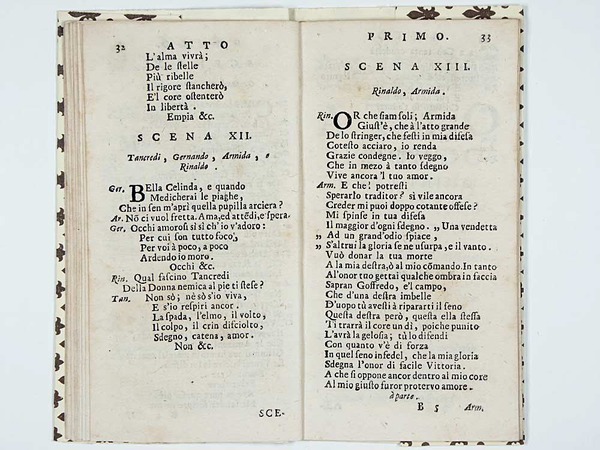 32 ATTO
L'alma vivrà;
De le ſtelle
Più ribelle
Il rigore ſtancherò,
E'l core oſtenterò
In libertà.
Empia &c.
SCENA XII.
Tancredi, Gernando, Armida, e
Rinaldo.
Ger. BElla Celinda, e quando
Medicherai le piaghe,
Che in ſen m'aprì quella pupilla arciera?
Ar. Nō ci vuol fretta. Ama, ed attēdi, e ſpera.
Ger. Occhi amoroſi sì sì ch'io v'adoro:
Per cui ſon tutto foco,
Per voi à poco, a poco
Ardendo io moro.
Occhi &c.
Rin. Qual faſcino Tancredi
Della Donna nemica al piè ti ſteſe?
Tan. Non sò; nè sò s'io viva,
E s'io reſpiri ancor.
La ſpada, l'elmo, il volto,
Il colpo, il crin diſciolto,
Sdegno, catena, amor.
Non &c.
SCE-
PRIMO. 33
SCENA XIII.
Rinaldo, Armida.
Rin. OR che ſiam ſoli; Armida
Giuſt'è, che à l'atto grande
De lo ſtringer, che feſti in mia difeſa
Coteſto acciaro, io renda
Grazie condegne. Io veggo,
Che in mezo à tanto ſdegno
Vive ancora'l tuo amor.
Arm. E che! potreſti
Sperarlo traditor? sì vile ancora
Creder mi puoi doppo cotante offeſe?
Mi ſpinſe in tua difeſa
Il maggior d'ogni ſdegno. „ Una vendetta
„ Ad un grand'odio ſpiace,
„ S'altrui la gloria ſe ne uſurpa, e il vanto.
Vuò donar la tua morte
A la mia deſtra, ò al mio cōmando. In tanto
Al'onor tuo gettai qualche ombra in faccia
Sapran Goffredo, e'l campo,
Che d'una deſtra imbelle
D'uopo tù aveſti à ripararti il ſeno
Queſta deſtra però, queſta ella ſteſſa
Ti trarrà il core un dì, poiche punito
L'avrà la geloſia; tù lo difendi
Con quanto v'è di forza
In quel ſeno infedel, che la mia gloria
Sdegna l'onor di facile Vittoria.
A che ſi oppone ancor dentro al mio core
Al mio giuſto furor protervo amore.
à parte.
B 5 Arm.